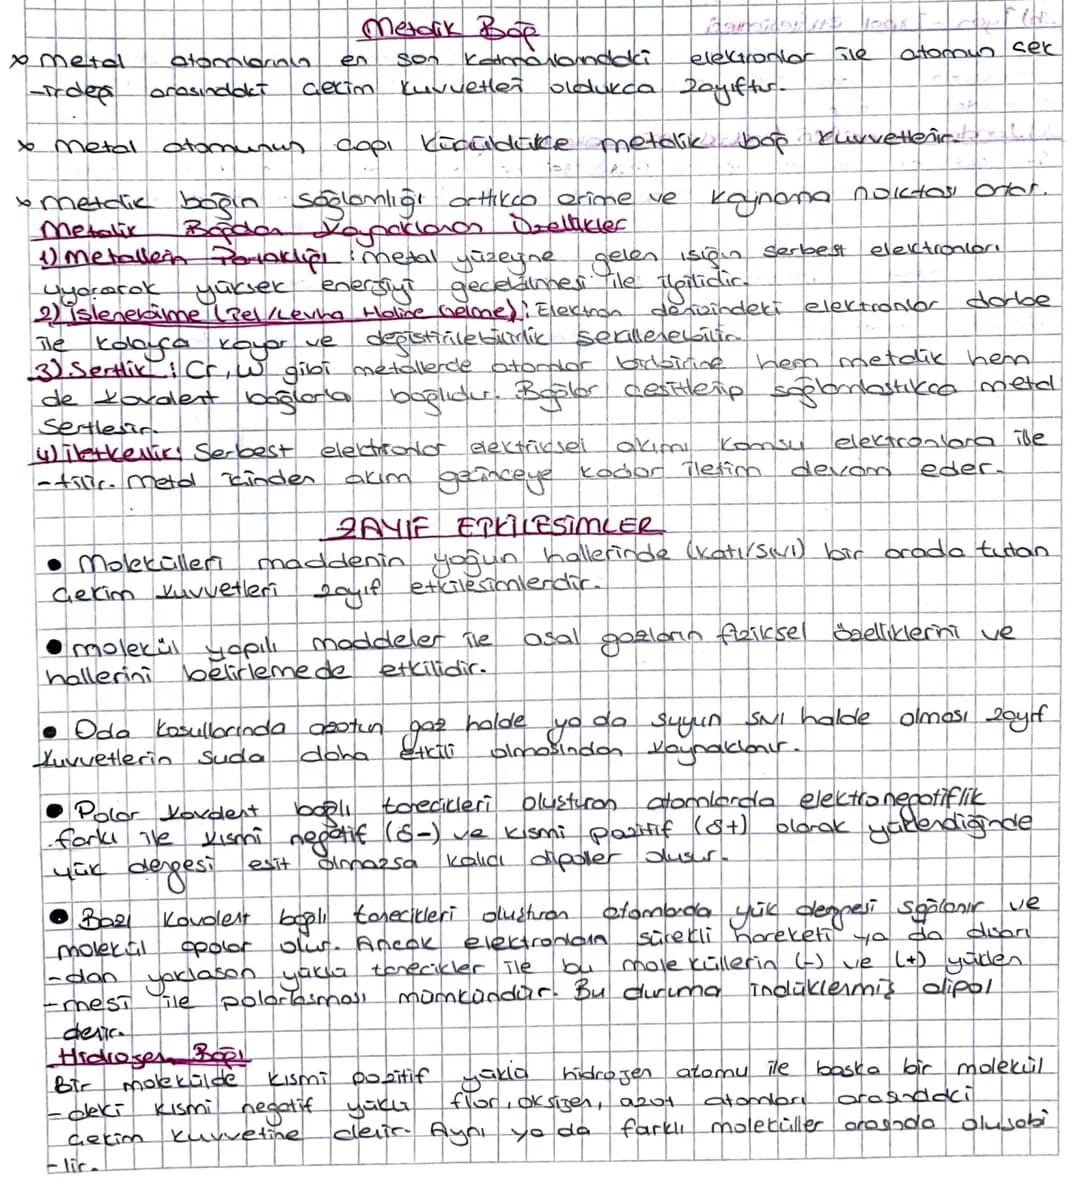 Metalik Bağ
* Metal atomlarının en son katmanlarındaki elektronlar ile atomun çek
-irdeği arasındaki çekim kuvvetleri oldukça zayıftır.
* Metal atomunun çapı küçüldükçe metalik bağ kuvvetlenir.
* Metalik bağın sağlamlığı arttıkça erime ve kaynama noktası artar.
Metalik Bağdan Kaynaklanan Özellikler
1) Metallerin Parlaklığı: Metal yüzeyine gelen ışığın serbest elektronları
uyararak yüksek enerjiyi geçebilmesi ile ilgilidir.
2) İşlenebilme (Tel/Levha Haline Gelme): Elektron denizindeki elektronlar darbe
ile kolayca kayar ve değiştirilebilirlik şekillenebilir.
3) Sertlik: Cr, W gibi metallerde atomlar birbirine hem metalik hem
de kovalent bağlarla bağlıdır. Bağlar çeşitlenip sağlamlaştıkça metal
sertleşir.
4) İletkenlik: Serbest elektronlar elektriksel akımı komşu elektronlara ile
-tilir. Metal içinden akım geçinceye kadar iletim devam eder.
ZAYIF ETKİLEŞİMLER
• Molekülleri maddenin yoğun hallerinde (katı/sıvı) bir arada tutan
çekim kuvvetleri zayıf etkileşimlerdir.
• Molekül yapılı maddeler ile asal gazların fiziksel özelliklerini ve
hallerini belirlemede etkilidir.
• Oda koşullarında azotun gaz halde ya da suyun sıvı halde olması zayıf
kuvvetlerin suda daha etkili olmasından kaynaklanır.
• Polar kovalent bağlı tanecikleri oluşturan atomlarda elektronegatiflik
farkı ile kısmi negatif (δ-) ve kısmi pozitif (δ+) olarak yüklendiğinde
yük dengesi eşit olmazsa kalıcı dipoller oluşur.
• Bazı kovalent bağlı tanecikleri oluşturan atomlarda yük dengesi sağlanır ve
molekül apolar olur. Ancak elektronların sürekli hareketi ya da dışarı
-dan yaklaşan yüklü tanecikler ile bu moleküllerin (-) ve (+) yüklen
-mesi ile polarlaşması mümkündür. Bu duruma indüklenmiş dipol
denir.
Hidrojen Bağı
Bir molekülde kısmi pozitif yüklü hidrojen atomu ile başka bir molekül
-deki kısmi negatif yüklü flor, oksijen, azot atomları arasındaki
çekim kuvvetine denir. Aynı ya da farklı moleküller arasında oluşabi
-lir.